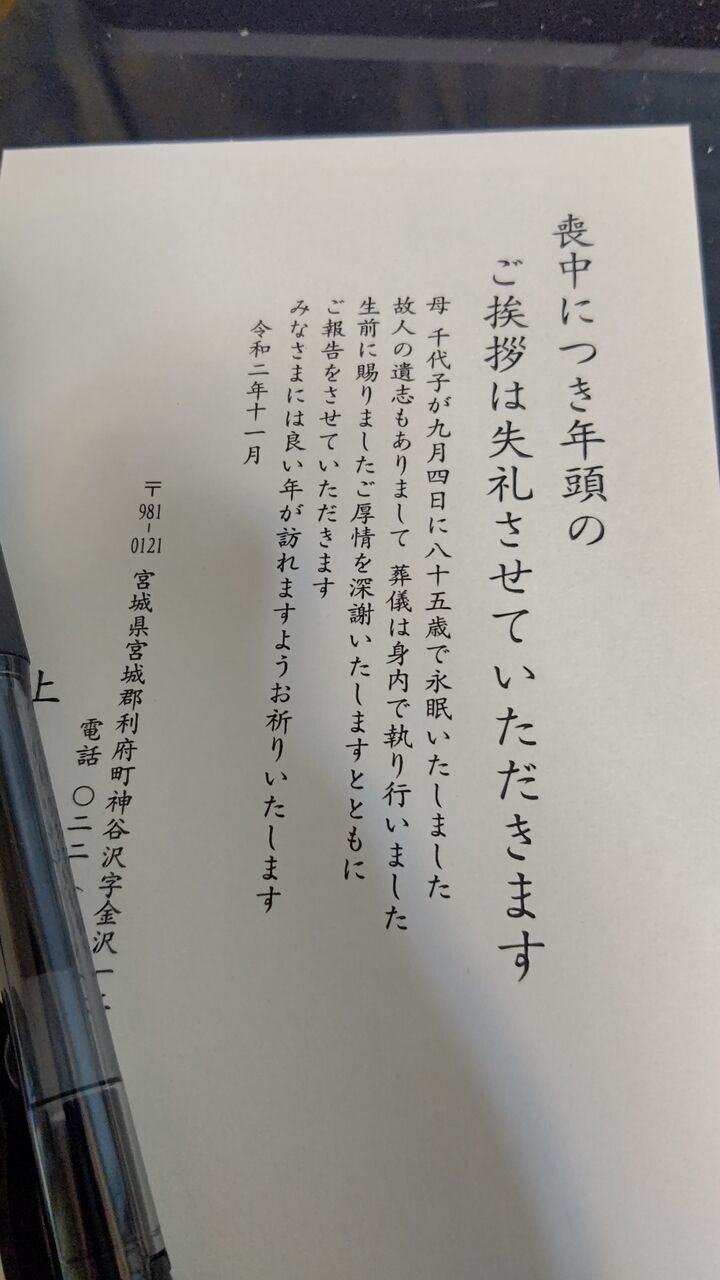 喪中につき年頭の
ご挨拶は失礼させていただきます
母 千代子が九月四日に八十五歳で永眠いたしました
故人の遺志もありまして 葬儀は身内で執り行いました
生前に賜りましたご厚情を深謝いたしますとともに
ご報告をさせていただきます
みなさまには良い年が訪れますようお祈りいたします
令和二年十一月
〒981-0121 宮城県宮城郡利府町神谷沢字金沢一
電話 〇二二
上